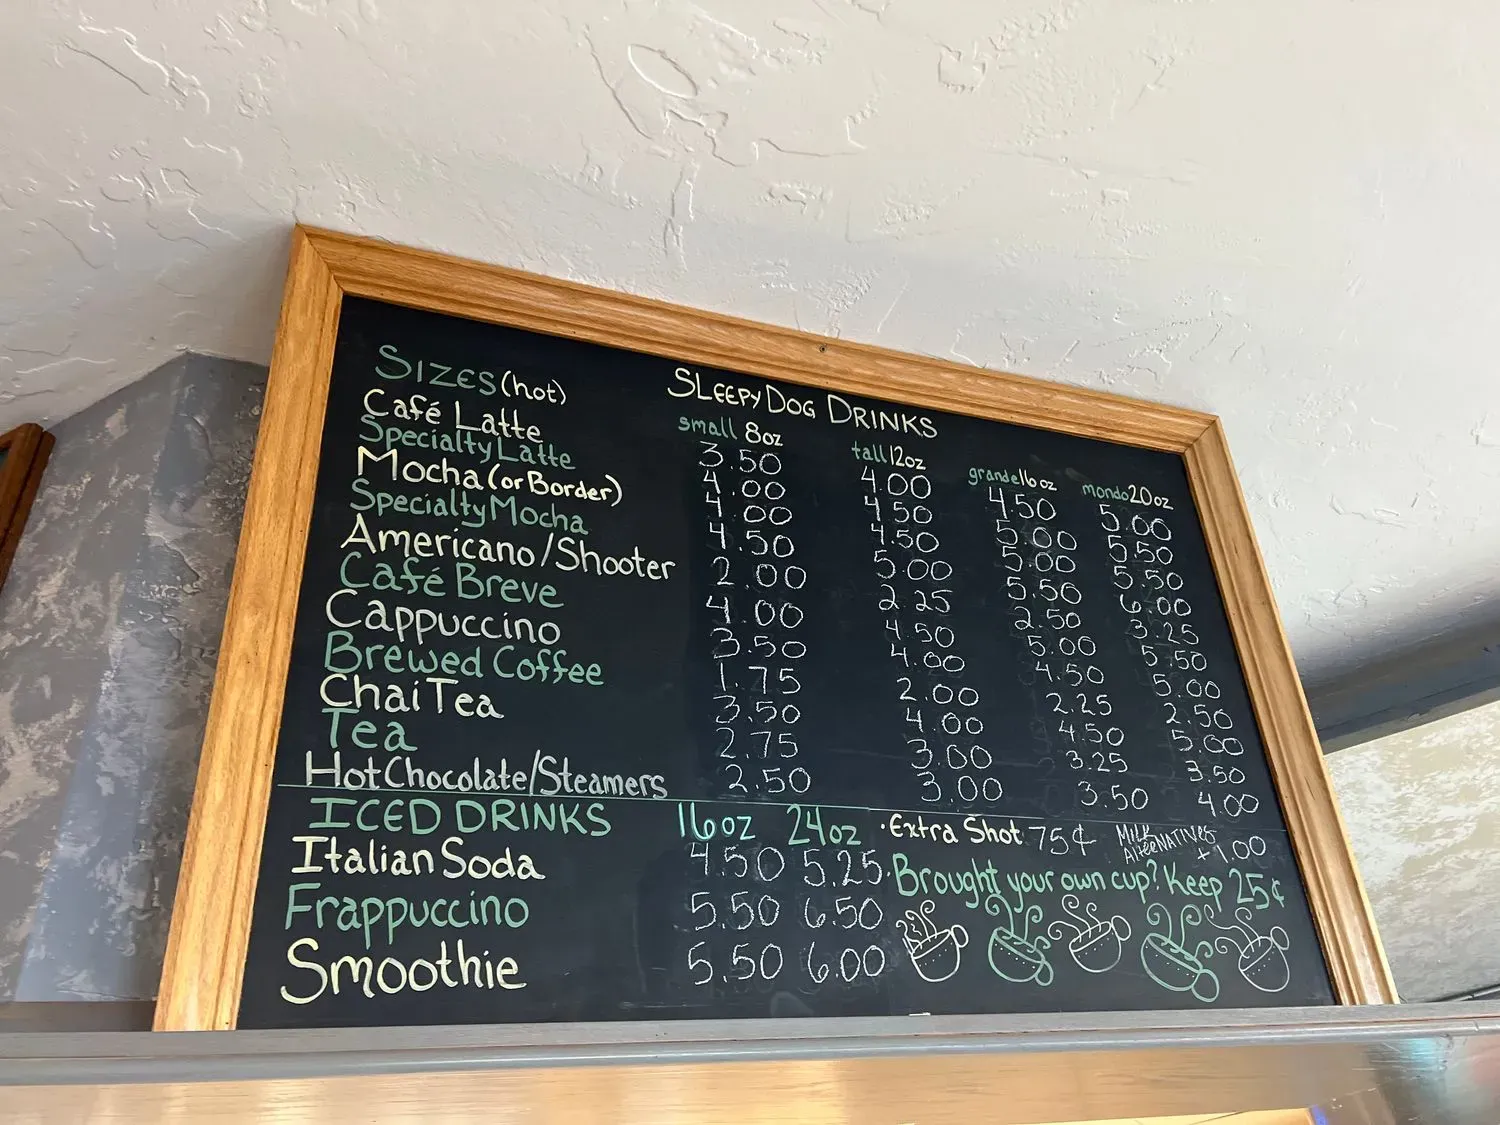 SLEEPY DOG DRINKS
SIZES (hot) small 8oz tall 12oz grande 16oz mondo 20oz
Café Latte 3.50 4.00 4.50 5.00
Specialty Latte 4.00 4.50 5.00 5.50
Mocha (or Border) 4.00 4.50 5.00 5.50
Specialty Mocha 4.50 5.00 5.50 6.00
Americano/Shooter 2.00 2.25 2.50 3.25
Café Breve 4.00 4.50 5.00 5.50
Cappuccino 3.50 4.00 4.50 5.00
Brewed Coffee 1.75 2.00 2.25 2.50
Chai Tea 3.50 4.00 4.50 5.00
Tea 2.75 3.00 3.25 3.50
Hot Chocolate/Steamers 2.50 3.00 3.50 4.00
ICED DRINKS 16oz 24oz
Italian Soda 4.50 5.25
Frappuccino 5.50 6.50
Smoothie 5.50 6.00
• Extra Shot 75¢
MILK
AlteRNATIVES +1.00
• Brought your own cup? Keep 25¢